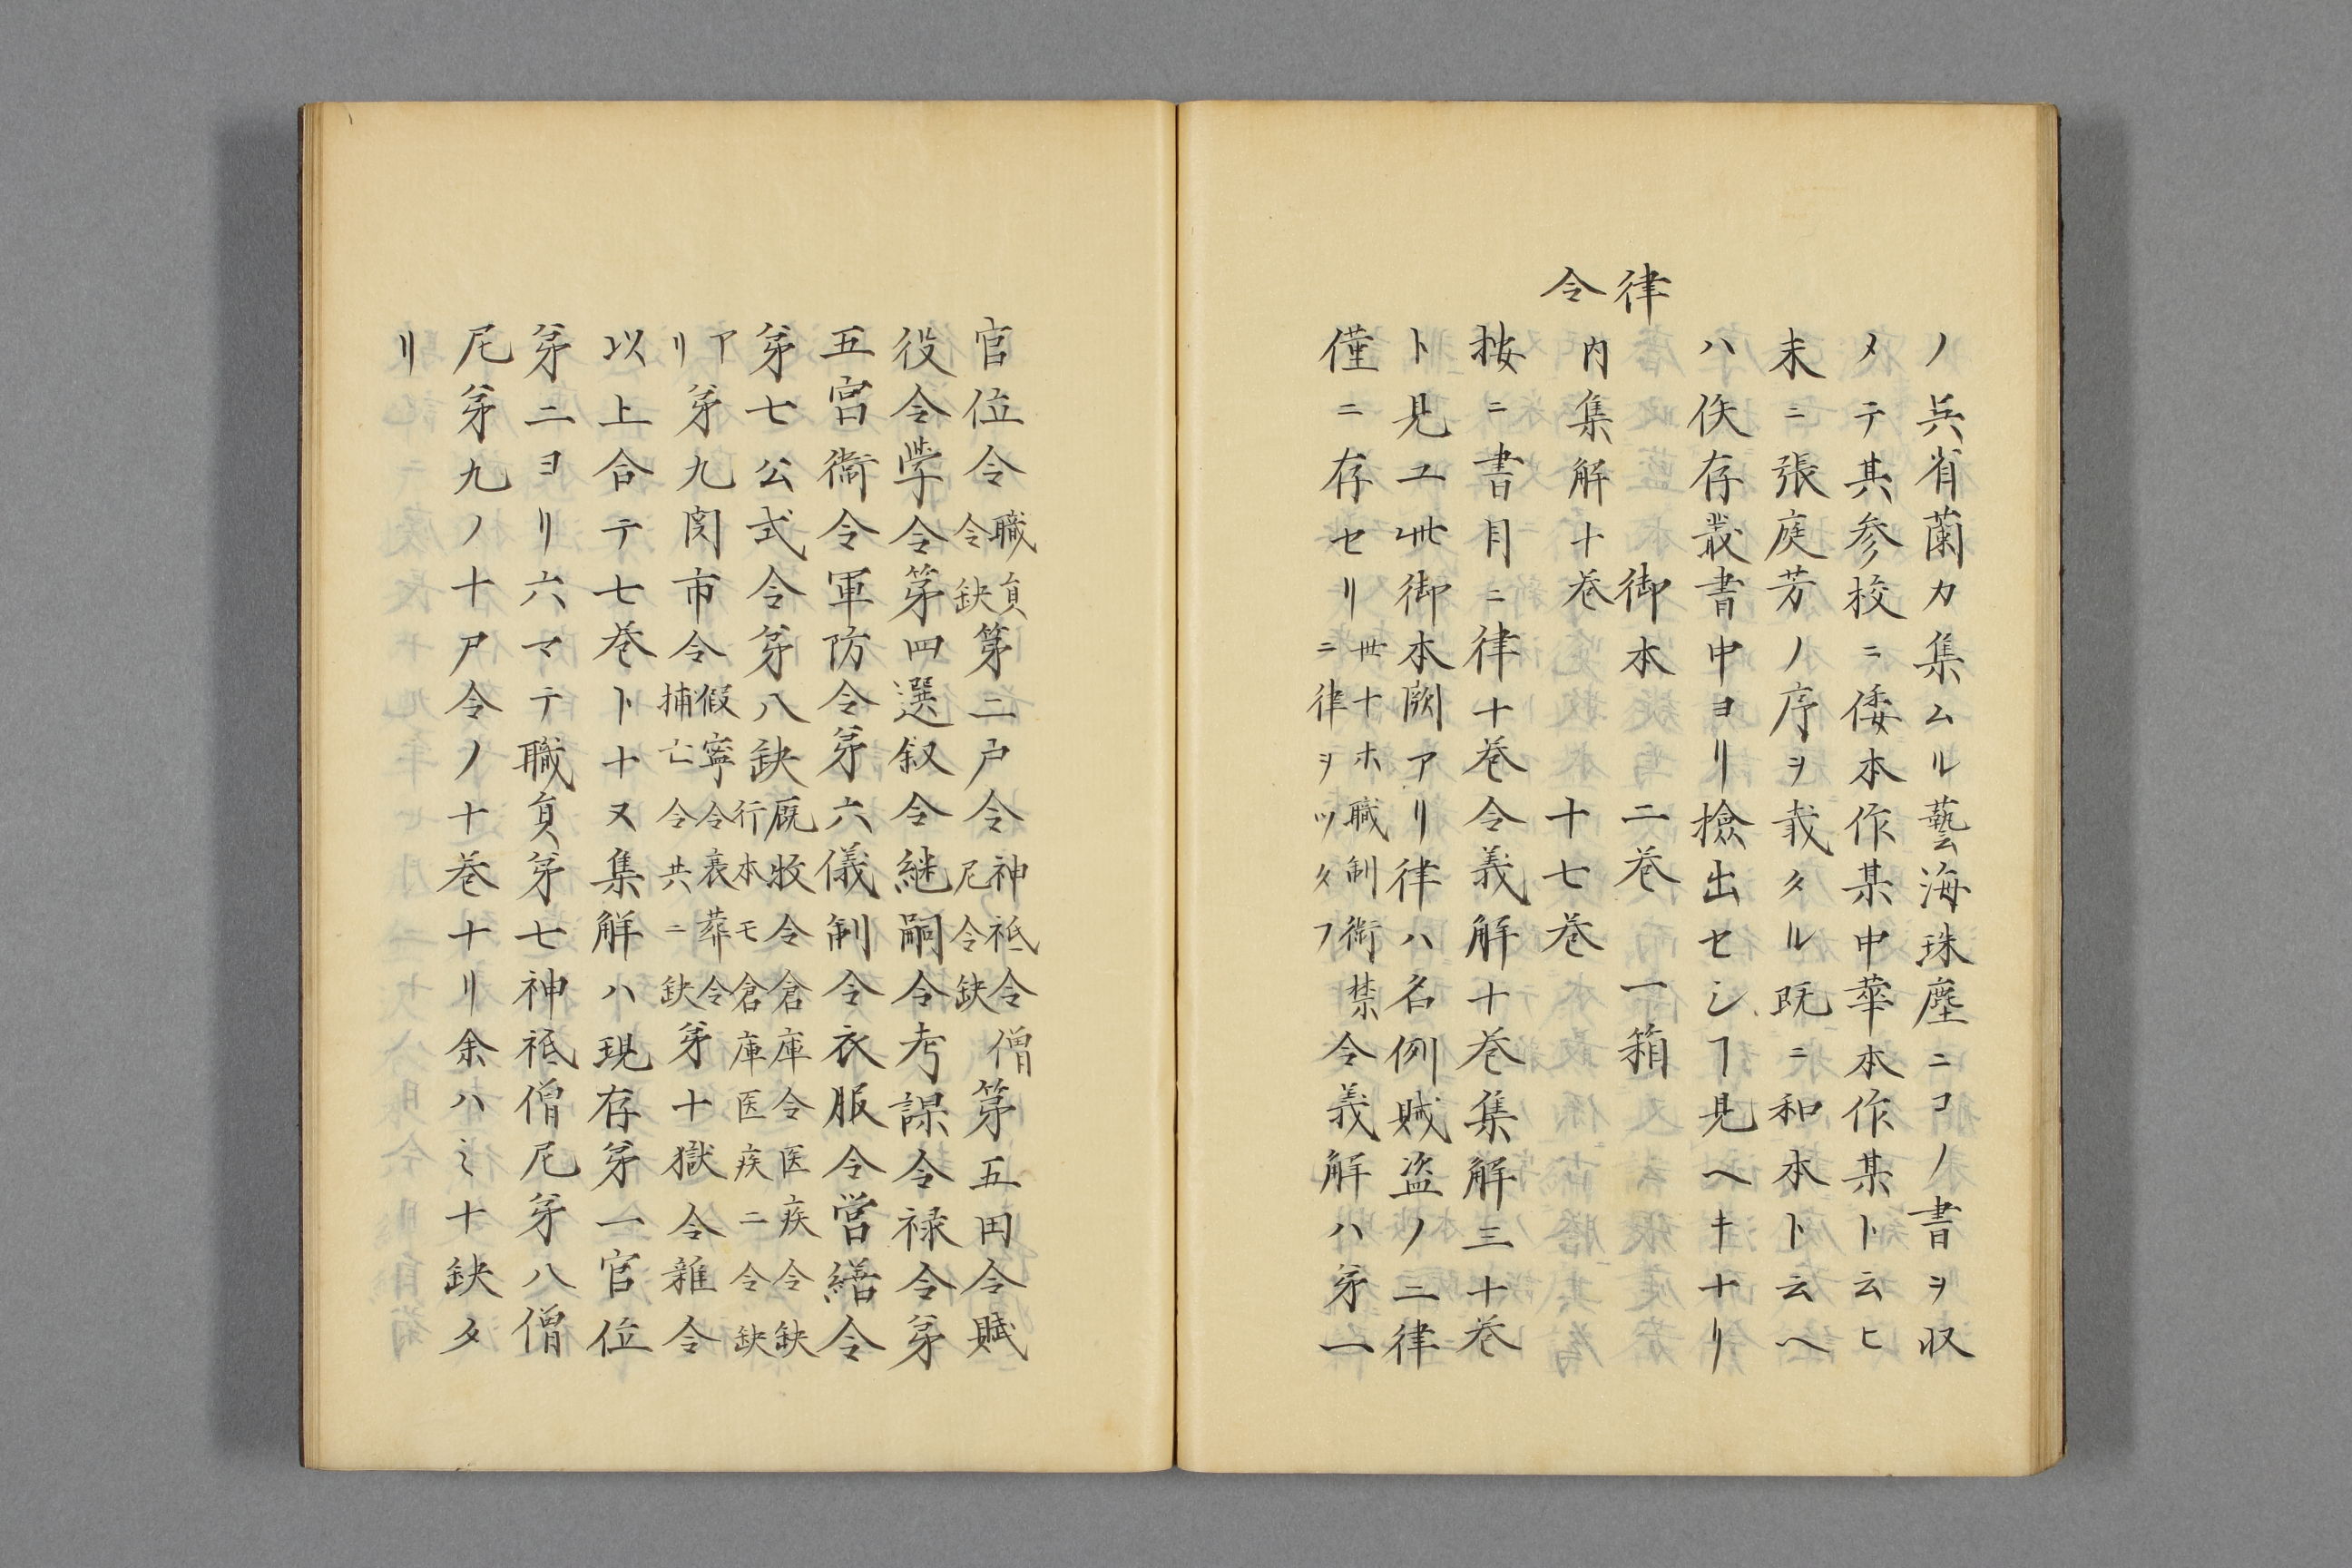 ノ兵省蘭カ集ムル藝海珠塵ニコノ書ヲ収
メテ其参校ニ倭本作某中華本作某ト云ヒ
末ニ張庭芳ノ序ヲ載タル既ニ和本ト云ヘ
ハ佚存叢書中ヨリ撿出セシヿ見ヘキナリ
律　御本　二巻　一箱
令　内集解十巻　十七巻
按ニ書目ニ律十巻令義解十巻集解三十巻
ト見ユ此御本闕アリ律ハ名例賊盗ノ二律
僅ニ存セリ
此ナホ職制衛禁
ニ律ヲツタフ
令義解ハ第一
官位令
職員
令缺
第二戸令
神祇令僧
尼令缺
第五田令賦
役令學令第四選叙令継嗣令考課令禄令第
五宮衛令軍防令第六儀制令衣服令営繕令
第七公式令第八缺
厩牧令倉庫令医疾令缺
行本モ倉庫医疾二令缺
アリ第九関市令
假寧令喪葬令
捕亡令共ニ缺
第十獄令雜令
以上合テ七巻トナス集解ハ現存第一官位
第二ヨリ六マテ職員第七神祇僧尼第八僧
尼第九ノ十戸令ノ十巻ナリ余ハミナ缺タ
リ